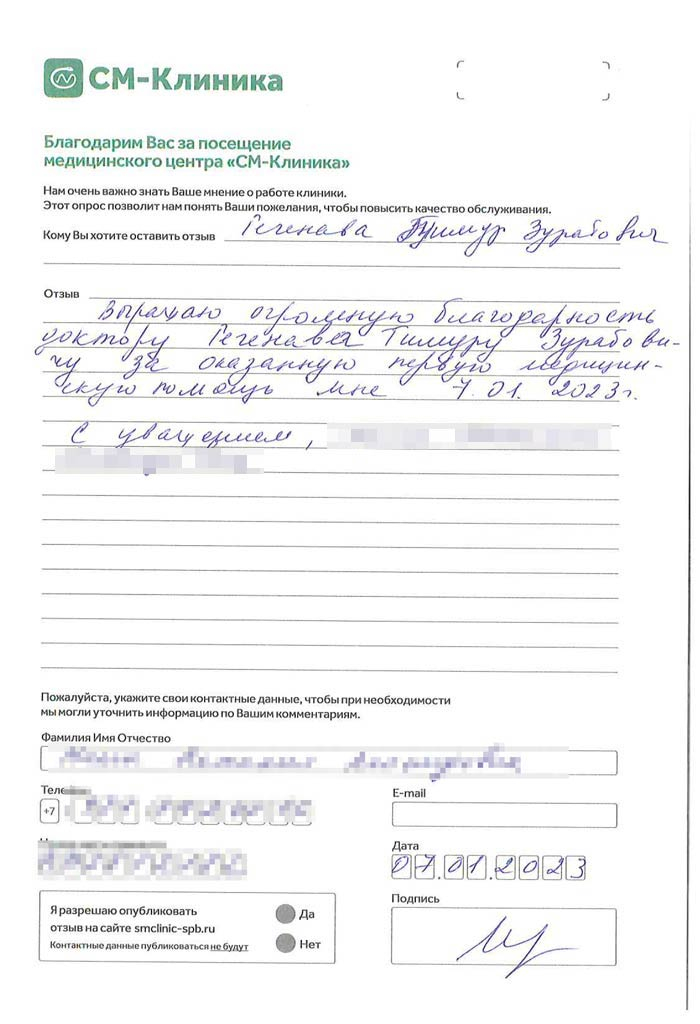 СМ-Клиника
Благодарим Вас за посещение
медицинского центра «СМ-Клиника»
Нам очень важно знать Ваше мнение о работе клиники.
Этот опрос позволит нам понять Ваши пожелания, чтобы повысить качество обслуживания.
Кому Вы хотите оставить отзыв Гегенава Тимур Зурабович
Отзыв
Выражаю огромную благодарность
доктору Гегенава Тимуру Зурабови-
чу за оказанную первую медицин-
скую помощь мне 7.01.2023г.
С уважением,
Пожалуйста, укажите свои контактные данные, чтобы при необходимости
мы могли уточнить информацию по Вашим комментариям.
Фамилия Имя Отчество
Телефон E-mail
+7
Дата
07.01.2023
Подпись
Я разрешаю опубликовать
отзыв на сайте smclinic-spb.ru
Контактные данные публиковаться не будут
Да
Нет